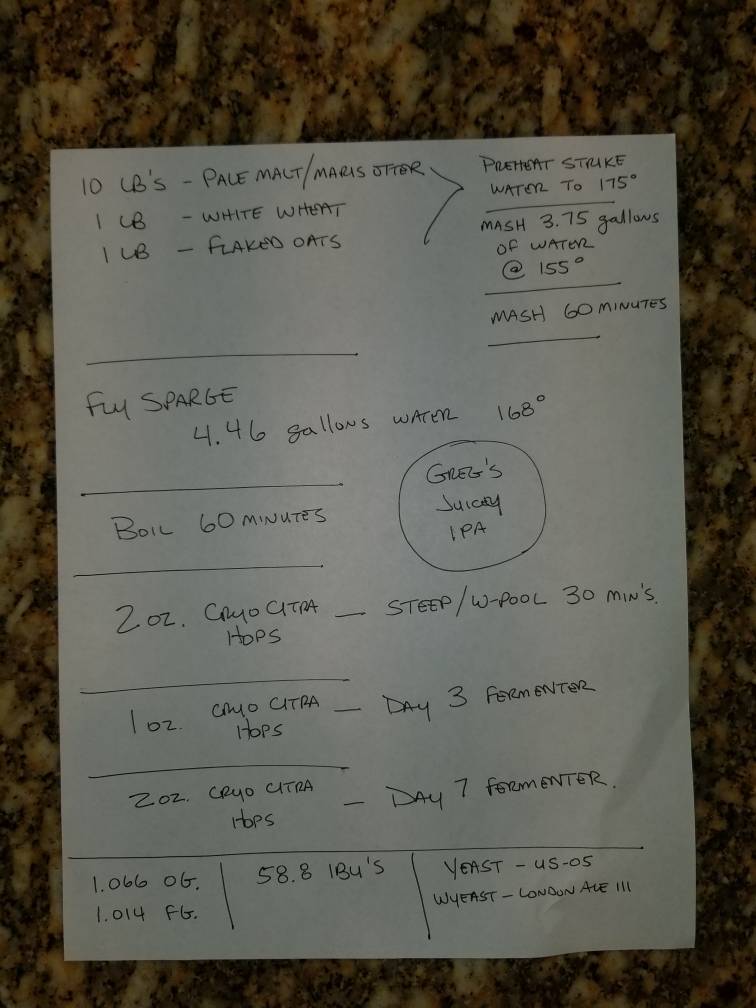 10 LB'S - PALE MALT/MARIS OTTER
1 LB - WHITE WHEAT
1 LB - FLAKED OATS
PREHEAT STRIKE
WATER TO 175°
MASH 3.75 gallons
OF WATER
@ 155°
MASH 60 MINUTES
FLY SPARGE
4.46 gallons WATER 168°
GREG'S
JUICEY
IPA
BOIL 60 MINUTES
2 OZ. CRYO CITRA — STEEP/W-POOL 30 MIN'S.
HOPS
1 OZ. CRYO CITRA — DAY 3 FERMENTER
HOPS
2 OZ. CRYO CITRA — DAY 7 FERMENTER.
HOPS
1.066 OG.
1.014 FG.
58.8 IBU'S
YEAST - US-05
WYEAST - LONDON ALE III